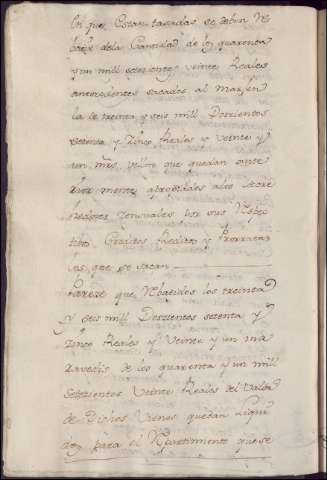 en que estan tasadas se deben Re
bajar dela Cantidad de los quarenta
y un mill setecientos veinte Reales
antecedentes sacados al Marjen
la de treinta y seis mill Doscientos
setenta y Zinco Reales y veinte y
un mrs. vellon que quedan ante
rior mente apropiados alos Acree
hedores Zensuales por sus Respec
tibos Creditos Reditos y Prorratas
las que se sacan
Parese que Rebajados los treinta
y seis mill Doscientos setenta y
Zinco Reales y Veinte y un ma
ravedis de los quarenta y un mill
Setecientos Veinte Reales del Valor
de Dichos Vienes quedan Liqui
dos para el Repartimiento que se